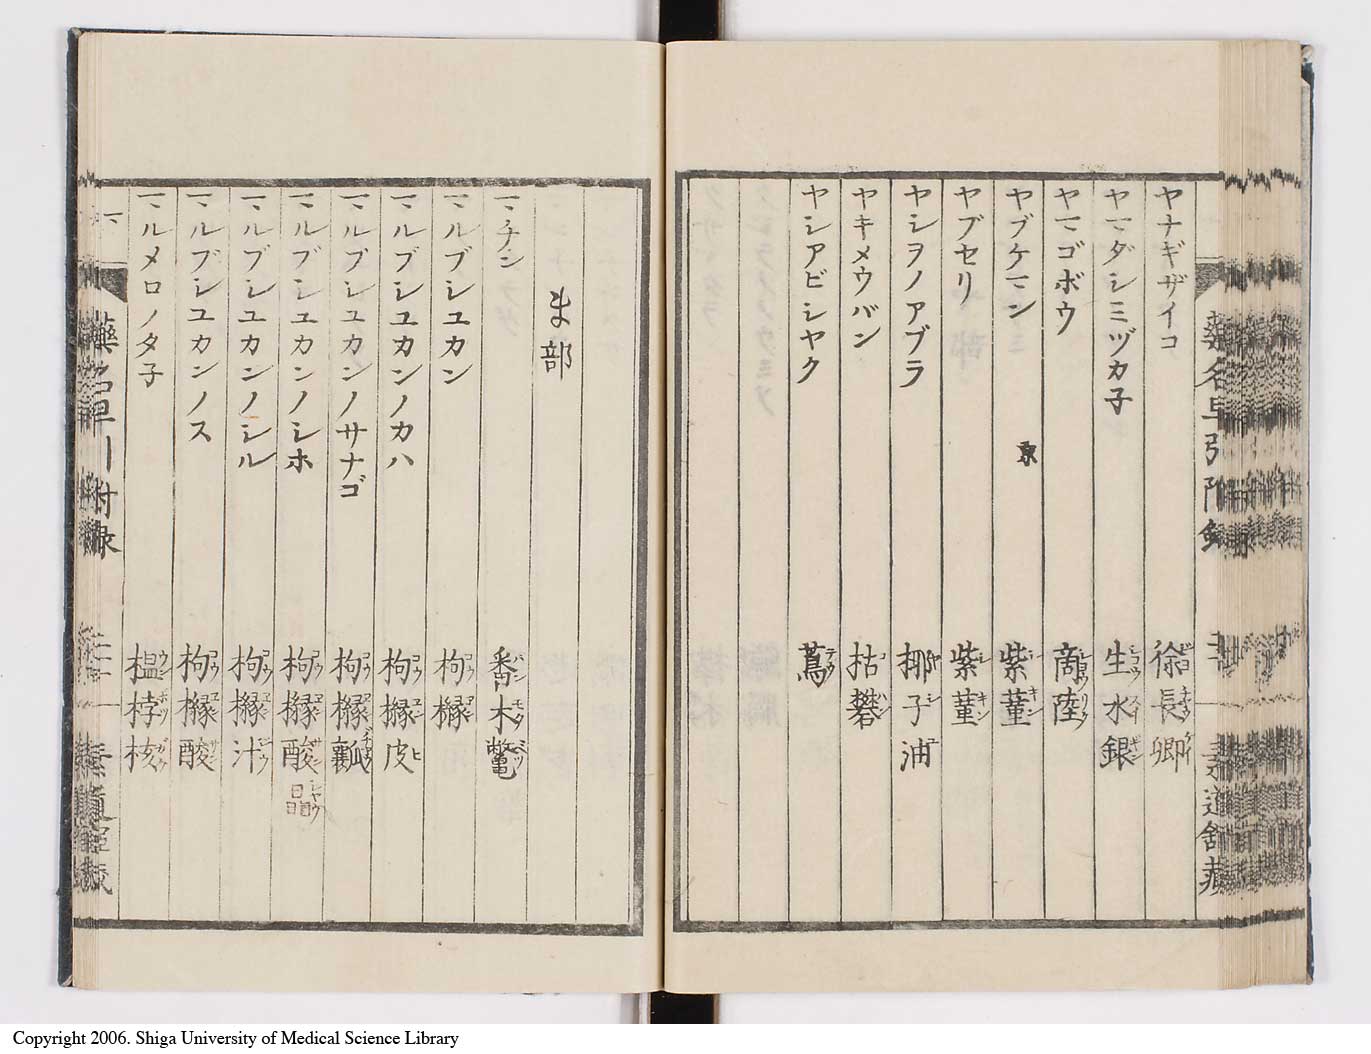 ヤナギザイコ 徐長卿
ヤマダシミヅカ子 生水銀
ヤマゴボウ 商陸
ヤブケマン 紫菫
ヤブセリ 紫菫
ヤシヲノアブラ 椰子油
ヤキメウバン 枯礬
ヤシアビシヤク 蔦
ま部
マチン 番木鼈
マルブシユカン 枸櫞
マルブシユカンノカハ 枸櫞皮
マルブシユカンノサナゴ 枸櫞瓤
マルブシユカンノシホ 枸櫞酸
マルブシユカンノシル 枸櫞汁
マルブシユカンノス 枸櫞酸
マルメロノタ子 榲桲核
Copyright 2006. Shiga University of Medical Science Library